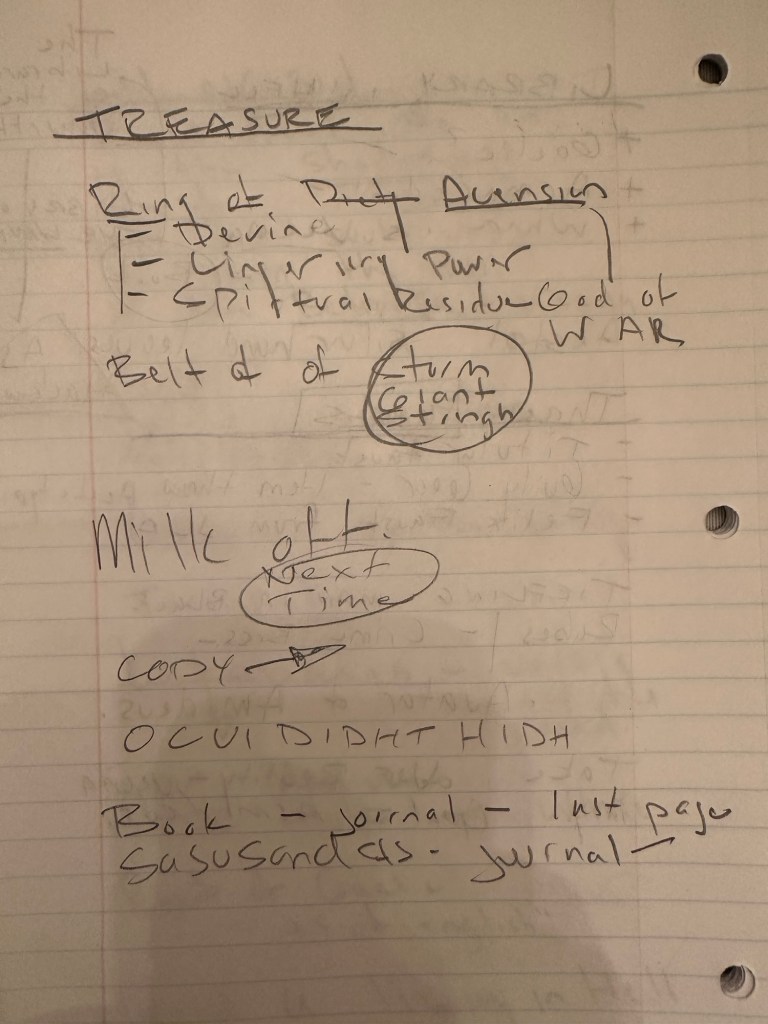 TREASURE
Ring of Acension
- Devine
- Lingering Power
- Spirtual Residue God of
WAR
Belt of of Sturm
Giant
Stringh
Milk off.
Next
Time
CODY
OCUI DIDHT HIDH
Book - Journal - last page
- Journal -